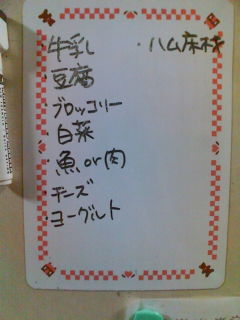 牛乳
・豆腐
ブロッコリー
・白菜
・魚or肉
チーズ
ヨーグルト
・ハム